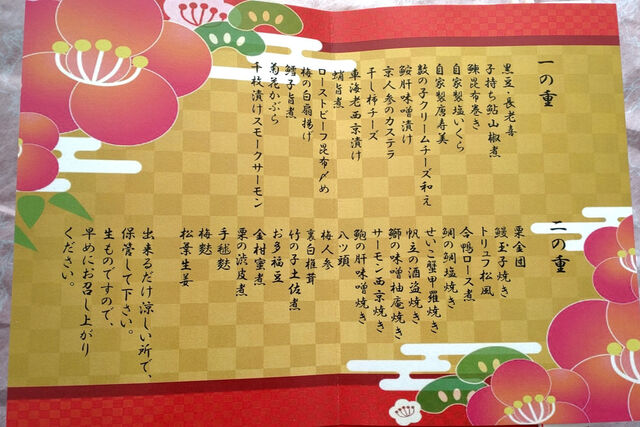 一の重
黒豆・長老喜
子持ち鮎山椒煮
鰊昆布巻き
自家製塩いくら
自家製唐寿美
数の子クリームチーズ和え
鮟肝味噌漬け
京人参のカステラ
干し柿チーズ
車海老西京漬け
蛸旨煮
ローストビーフ昆布〆め
梅の白扇揚げ
鱈子旨煮
菊花かぶら
千枚漬けスモークサーモン
二の重
栗金団
鰻玉子焼き
トリュフ松風
合鴨ロース煮
鯛の鯛塩焼き
せいこ蟹甲羅焼き
帆立の酒盗焼き
鰤の味噌柚庵焼き
サーモン西京焼き
鮑の肝味噌焼き
八ツ頭
梅人参
裏白椎茸
竹の子土佐煮
お多福豆
金柑蜜煮
栗の渋皮煮
手毬麩
梅麩
松葉生姜
出来るだけ涼しい所で、
保管して下さい。
生ものですので、
早めにお召し上がり
ください。